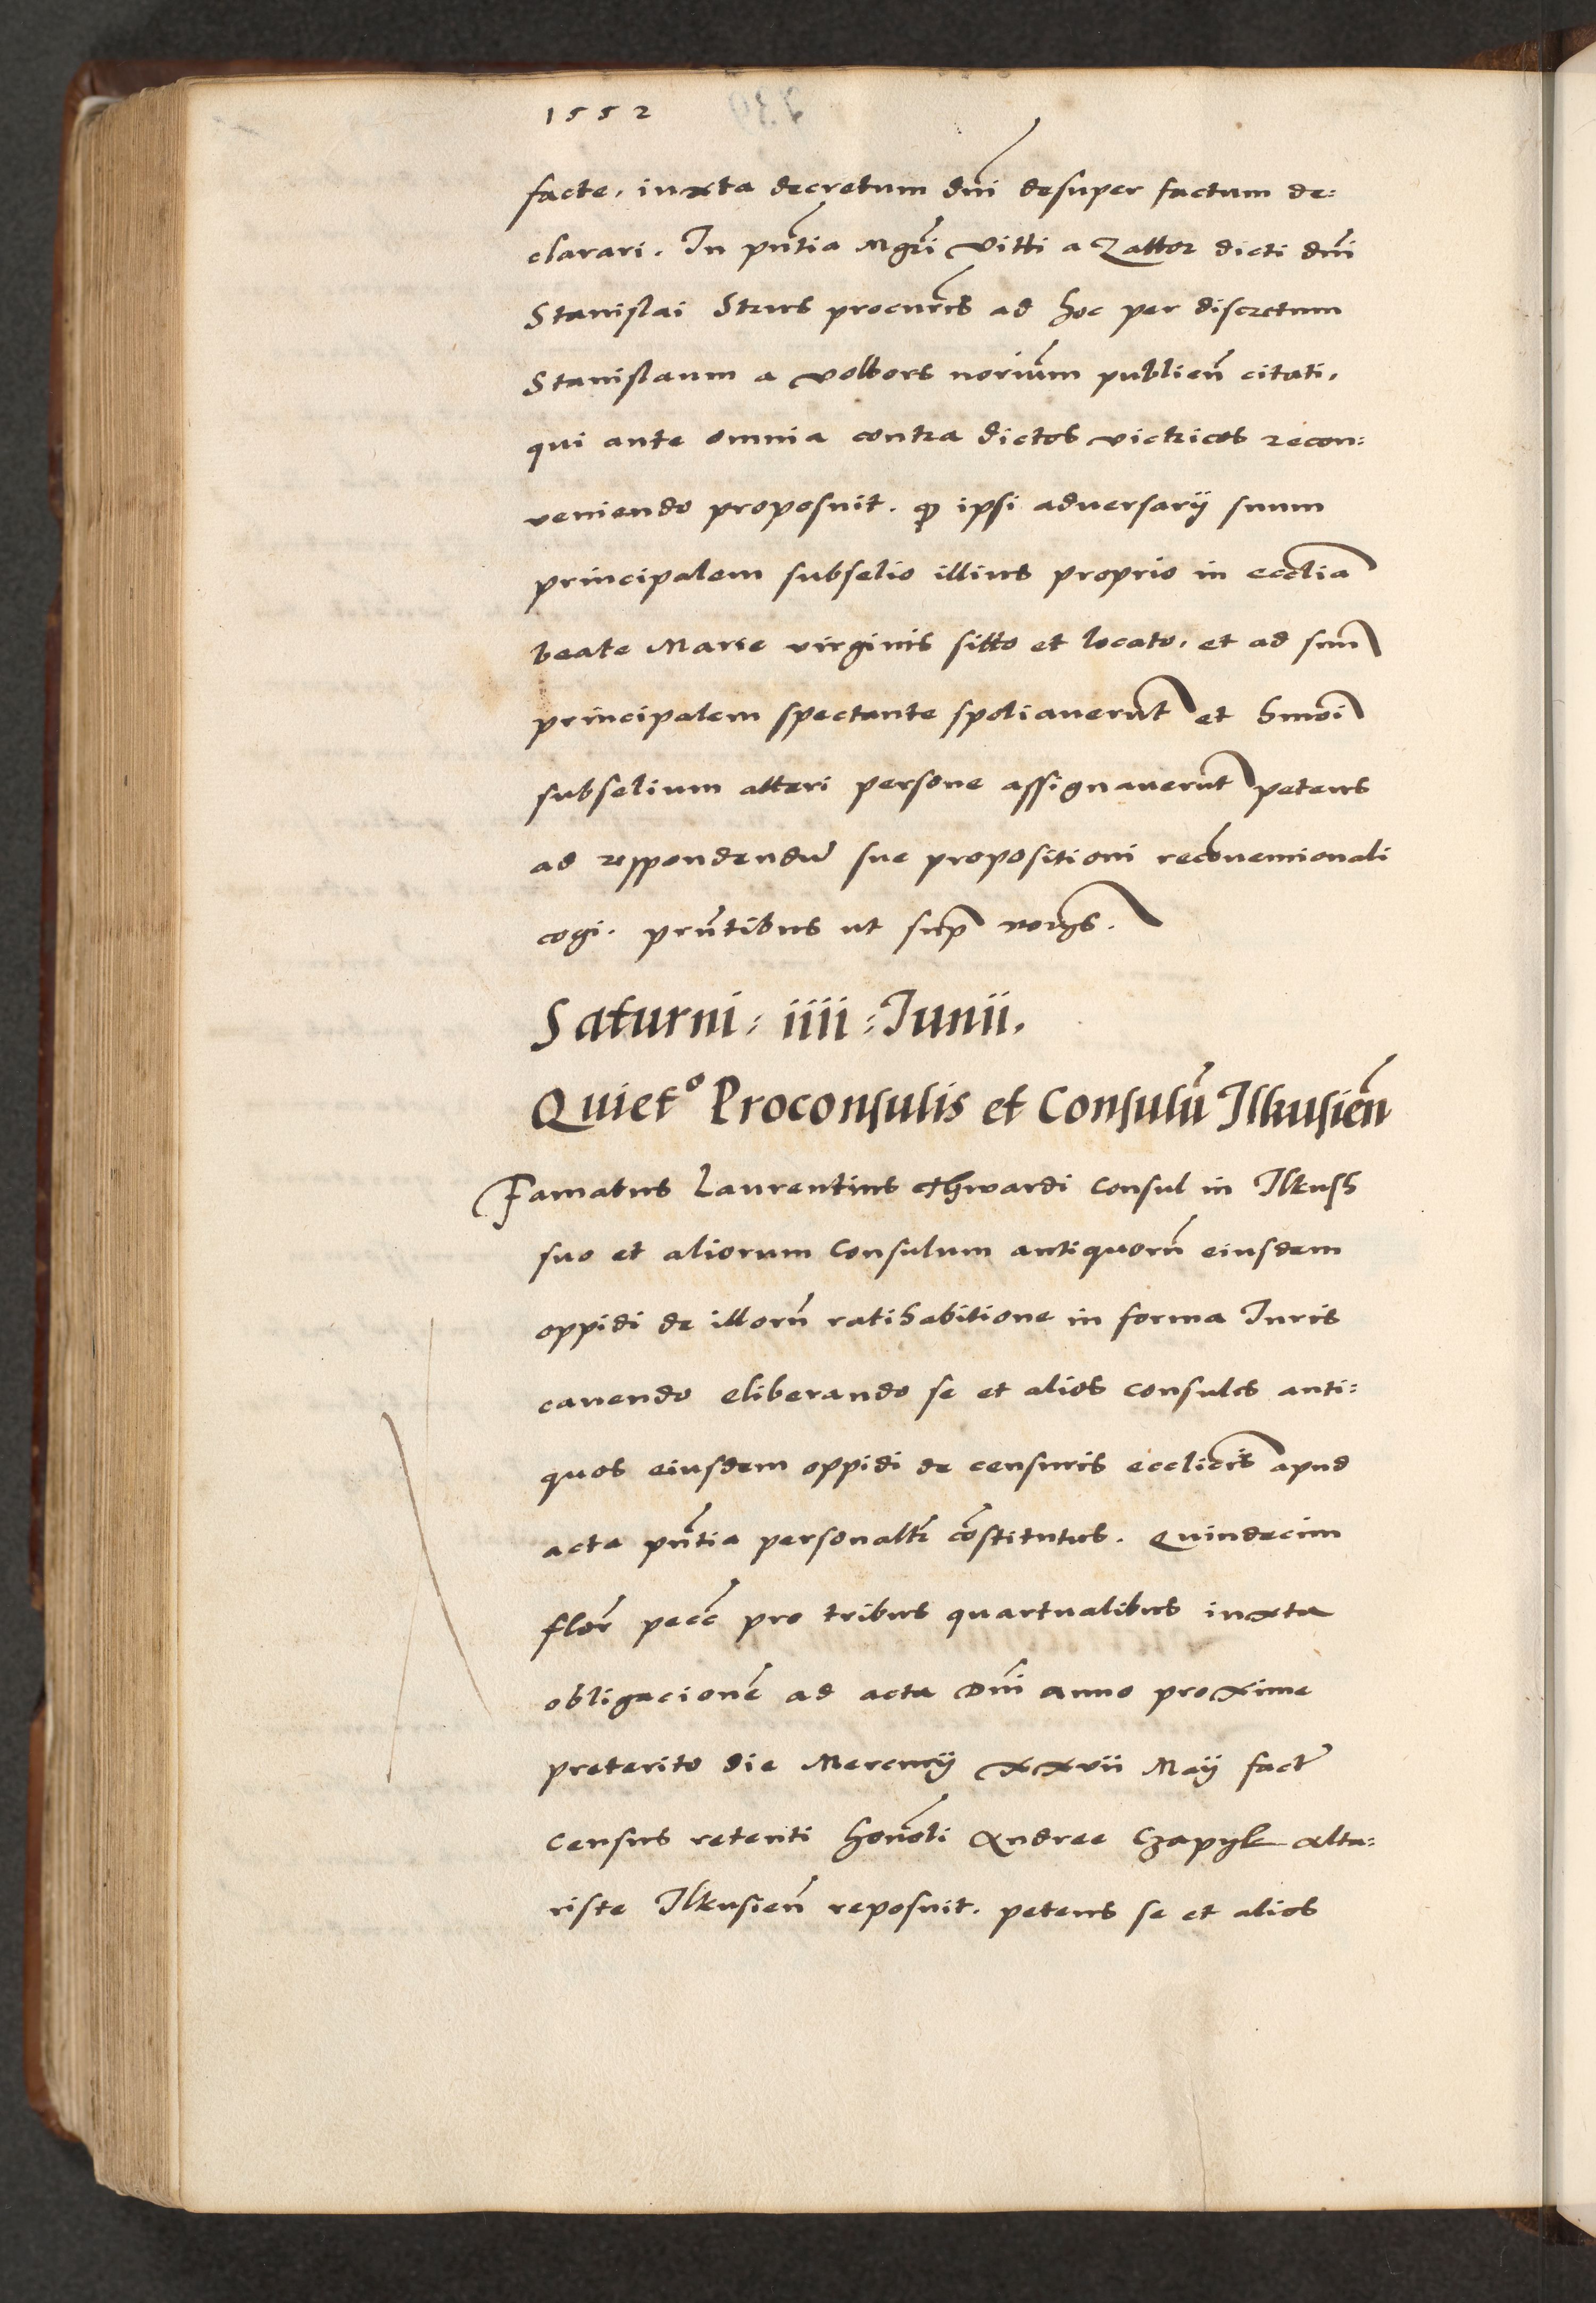 1552
facte. iuxta decretum dni desuper factum de:
clarari. In pntia Mgri Vitti a Zattor dicti dni
Stanislai Strus procuris ad hoc per discretum
Stanislaum a Volbors norium publicu citati.
qui ante omnia contra dictos victricos recon:
veniendo proposuit. ꝙ ipsi adversarij suum
principalem subselio illius proprio in ecclia
beate Marie virginis sitto et locato. et ad suu
principalem spectante spoliaverut et hmoi
subselium alteri persone assignaverut petens
ad respondendu sue propositioni recovemionali
cogi. prntibus ut sup
Saturni: iiii: Junii.
Quieto Proconsulis et Consulu Ilkusien
Famatus Laurentius Chwardi Consul in Ilkush
suo et aliorum Consulum antiquoru eiusdem
oppidi de illoru ratihabitione in forma Iuris
cavendo eliberando se et alios consules anti:
quos eiusdem oppidi de censuris eccliecis apud
acta pntia personaltr costitutus. Quindecim
flor pecc pro tribus quartualibus iuxta
obligacione ad acta Dni anno proxime
preterito die Mercurij xxvii Maij fact
census retenti honoli Andree Czapyk alta:
riste Ilkusien reposuit. petens se et alios